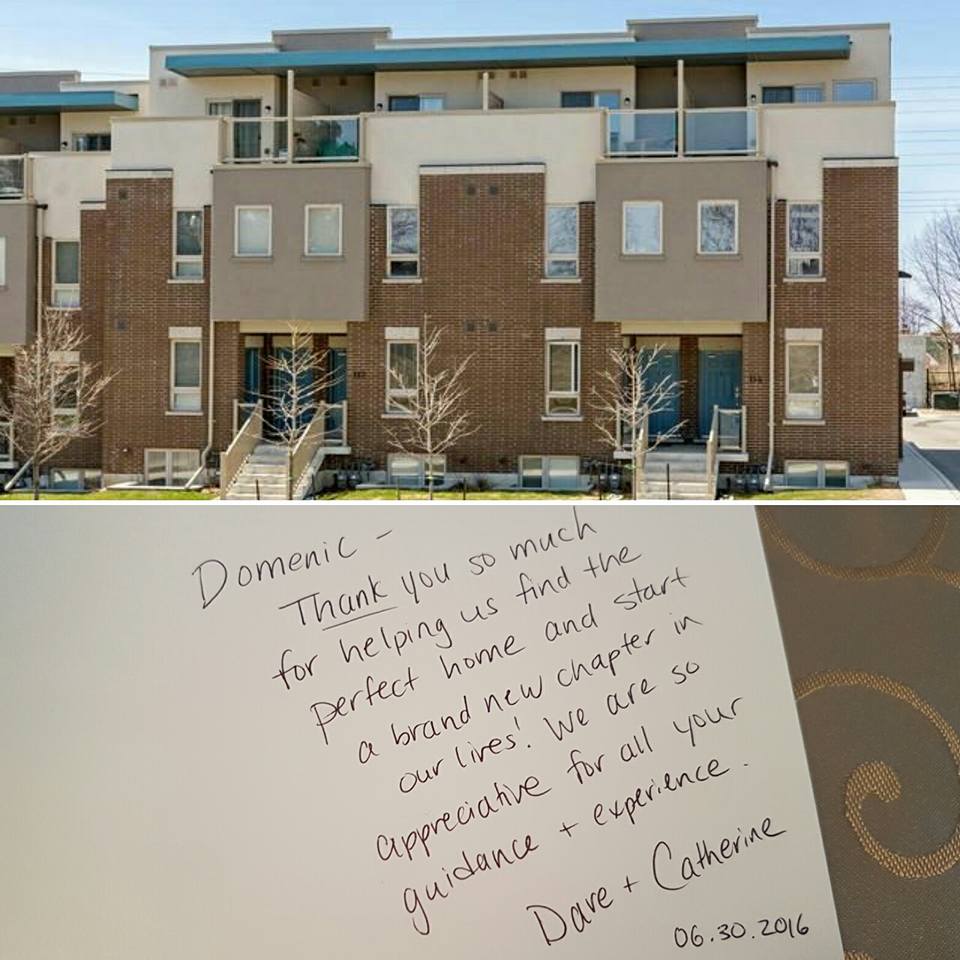 Domenic -
Thank you so much
for helping us find the
perfect home and start
a brand new chapter in
our lives! We are so
appreciative for all your
guidance + experience.
Dave + Catherine
06.30.2016